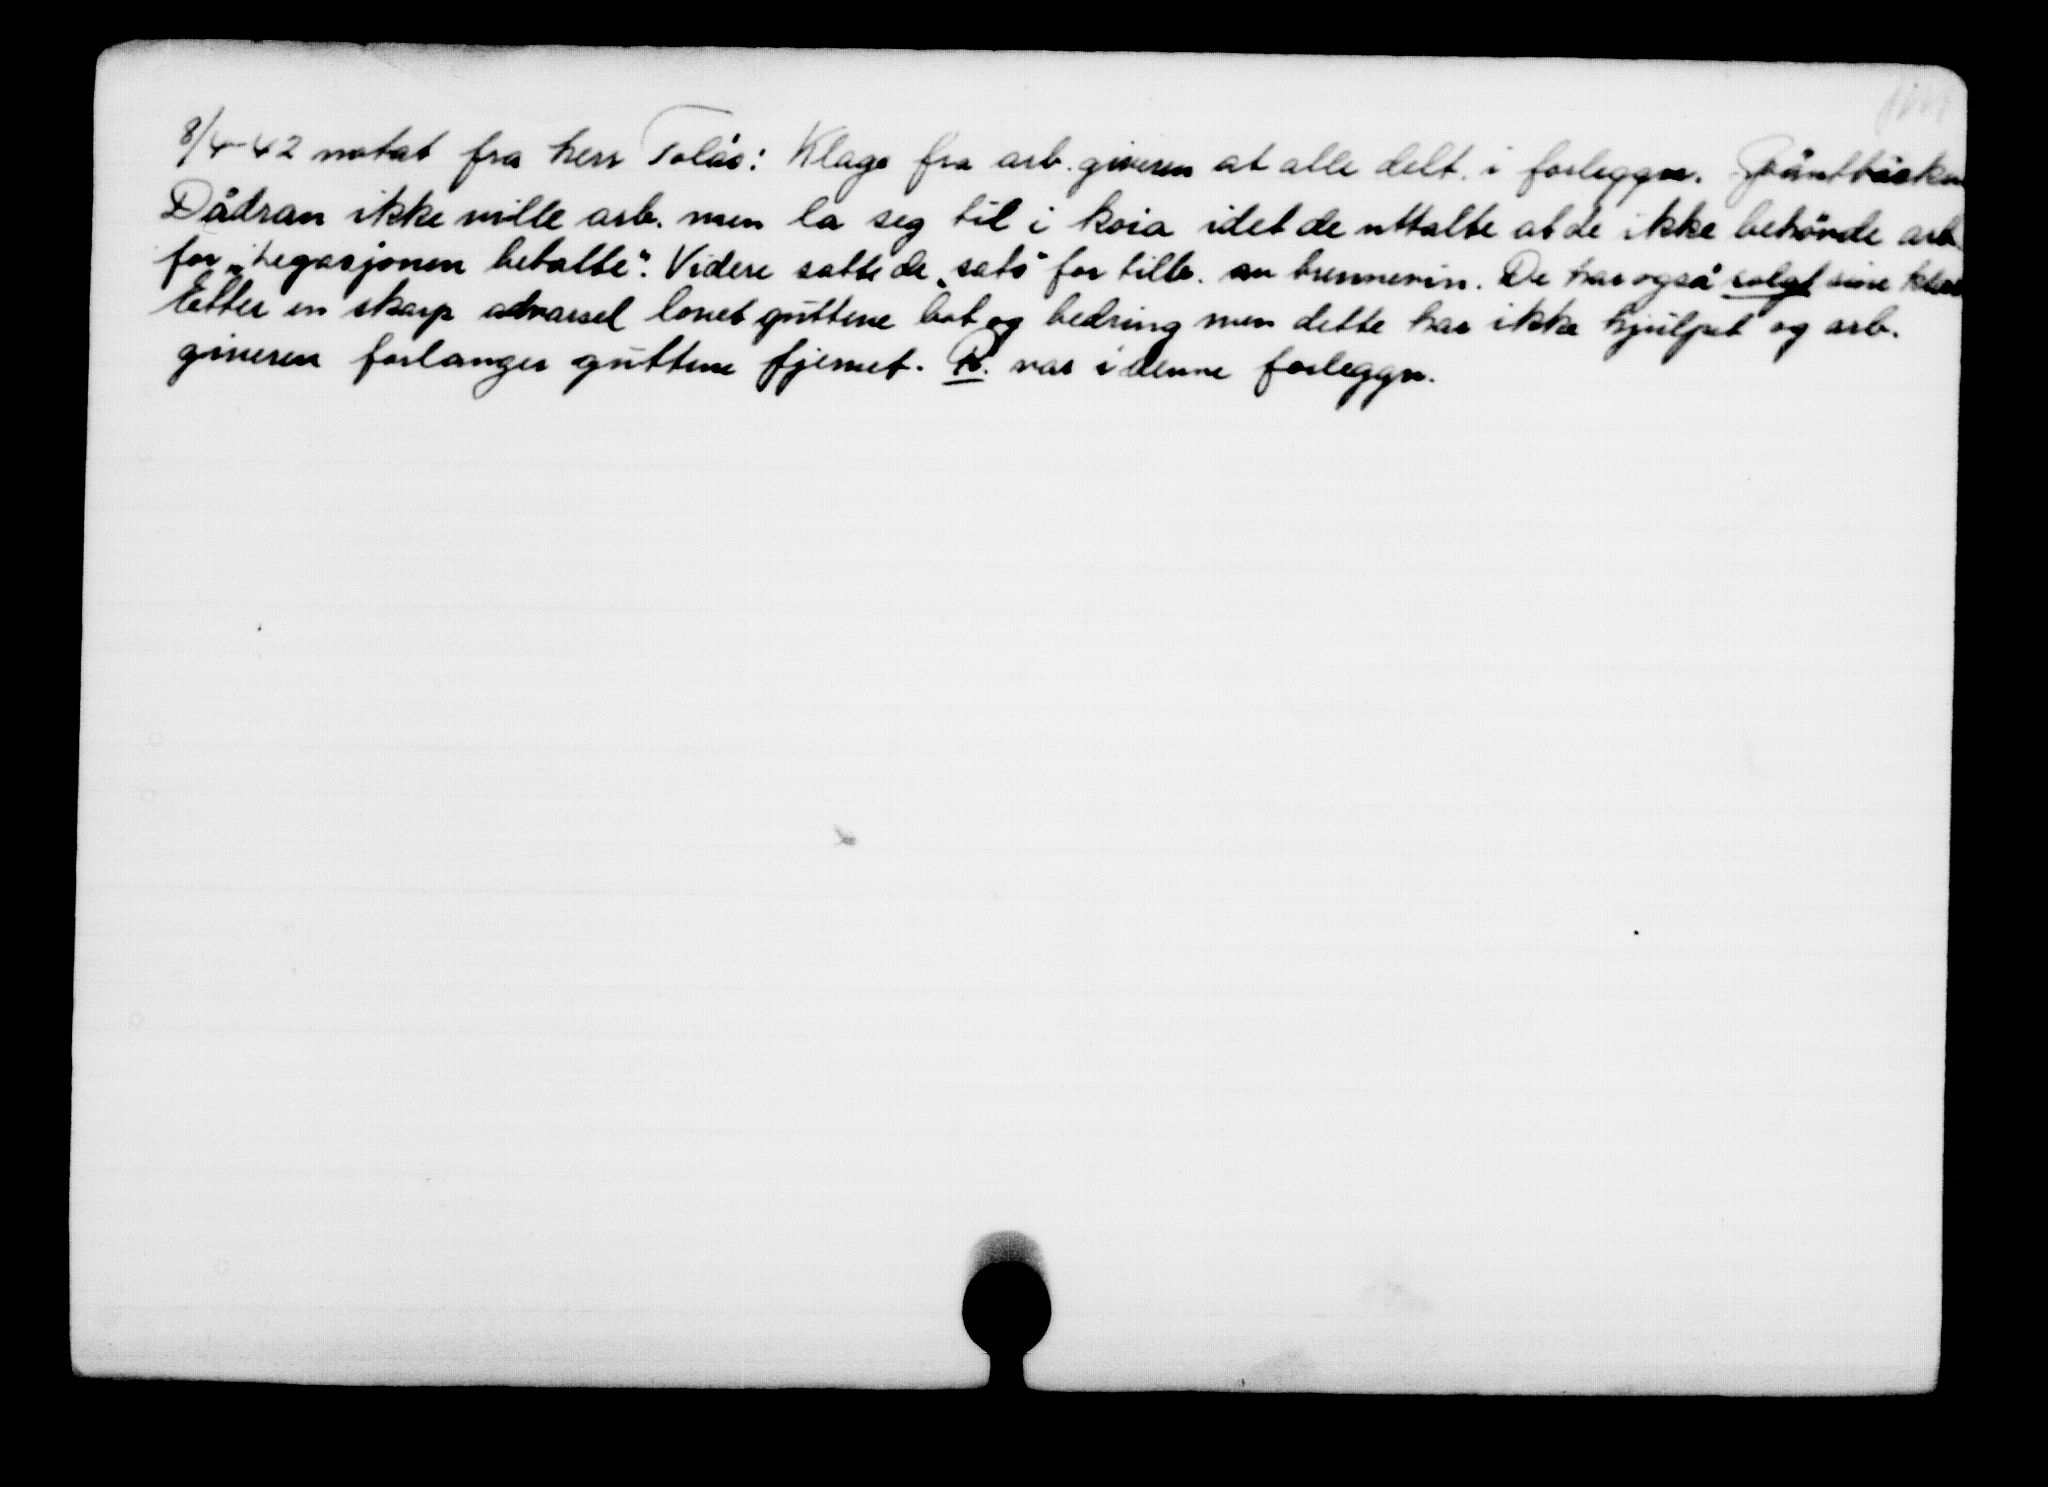 8/4-42 notat fra herr Tolås: Klage fra arb.giveren at alle delt. i forleggn.
Dådran ikke ville arb. men la seg til i koia idet de uttalte at de ikke behövde arb.
for "legasjonen betalte". Videre satte de "sats" for tillv. av brennevin. De har også solgt sine klær
Etter en skarp advarsel lovet guttene bot og bedring men dette har ikke hjulpet og arb.
giveren forlanger guttene fjernet. R. var i denne forleggn.